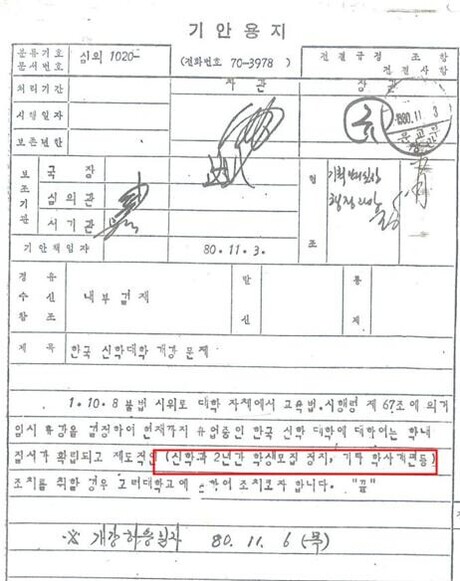 기안용지
분류기호 문서번호 심의 1020- (전화번호 70-3978) 전결규정 조 항 전결사항
처리기간 차관 장관
시행일자
보존년한
1980.11.3
보조기관 국장 협조
심의관
서기관
기안책임자 80.11.3.
경유 수신 참조 내부결재 발신 통제
제목 한국 신학대학 개강 문제
1. 10. 8 불법 시위로 대학 자체에서 교육법.시행령 제 67조에 의거
임시 휴강을 결정하여 현재까지 휴업중인 한국 신학 대학에 대하여는 학내
질서가 확립되고 제도적인 (신학과 2년간 학생모집 정지, 기타 학사개편등)
조치를 취할 경우 조치코자 합니다. "끝"
※ 개강허용일자 80. 11. 6 (목)